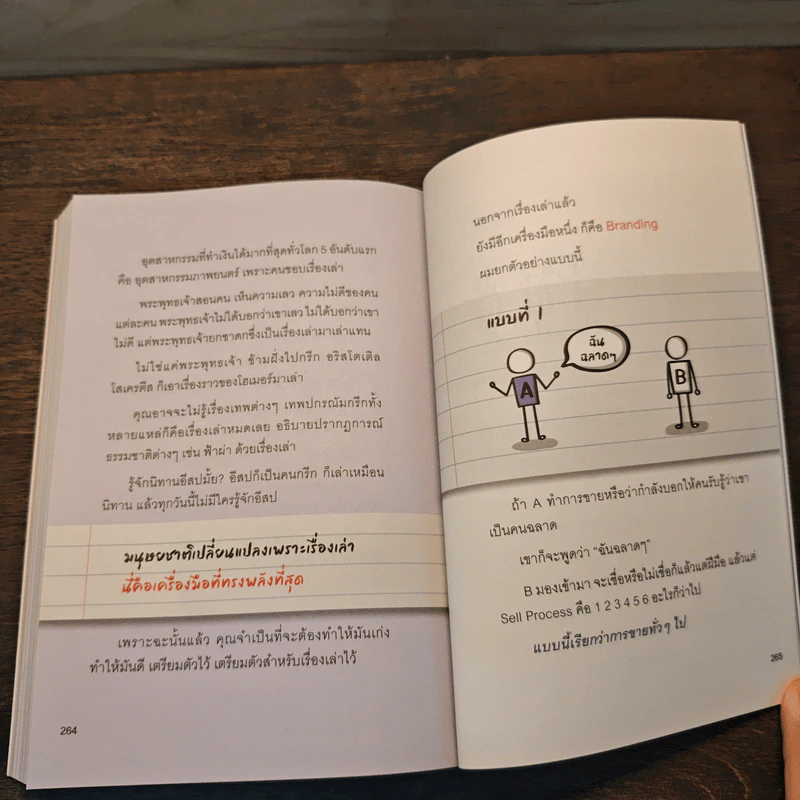 อุตสาหกรรมที่ทำเงินได้มากที่สุดทั่วโลก 5 อันดับแรก
คือ อุตสาหกรรมภาพยนตร์ เพราะคนชอบเรื่องเล่า
พระพุทธเจ้าสอนคน เห็นความเลว ความไม่ดีของคน
แต่ละคน พระพุทธเจ้าไม่ได้บอกว่าเขาเลว ไม่ได้บอกว่าเขา
ไม่ดี แต่พระพุทธเจ้ายกชาดกซึ่งเป็นเรื่องเล่ามาเล่าแทน
ไม่ใช่แค่พระพุทธเจ้า ข้ามฝั่งไปกรีก อริสโตเติล
โสเครตีส ก็เอาเรื่องราวของโฮเมอร์มาเล่า
คุณอาจจะไม่รู้เรื่องเทพต่างๆ เทพปกรณัมกรีกทั้ง
หลายแหล่ก็คือเรื่องเล่าหมดเลย อธิบายปรากฏการณ์
ธรรมชาติต่างๆ เช่น ฟ้าผ่า ด้วยเรื่องเล่า
รู้จักนิทานอีสปมั้ย? อีสปก็เป็นคนกรีก ก็เล่าเหมือน
นิทาน แล้วทุกวันนี้ไม่มีใครรู้จักอีสป
มนุษยชาติเปลี่ยนแปลงเพราะเรื่องเล่า
นี่คือเครื่องมือที่ทรงพลังที่สุด
เพราะฉะนั้นแล้ว คุณจำเป็นที่จะต้องทำให้มันเก่ง
ทำให้มันดี เตรียมตัวไว้ เตรียมตัวสำหรับเรื่องเล่าไว้
264
นอกจากเรื่องเล่าแล้ว
ยังมีอีกเครื่องมือหนึ่ง ก็คือ Branding
ผมยกตัวอย่างแบบนี้
แบบที่ 1
ฉัน
ฉลาดๆ
A
B
ถ้า A ทำการขายหรือว่ากำลังบอกให้คนรับรู้ว่าเขา
เป็นคนฉลาด
เขาก็จะพูดว่า “ฉันฉลาดๆ”
B มองเข้ามา จะเชื่อหรือไม่เชื่อก็แล้วแต่ฝีมือ แล้วแต่
Sell Process คือ 1 2 3 4 5 6 อะไรก็ว่าไป
แบบนี้เรียกว่าการขายทั่วๆ ไป
265